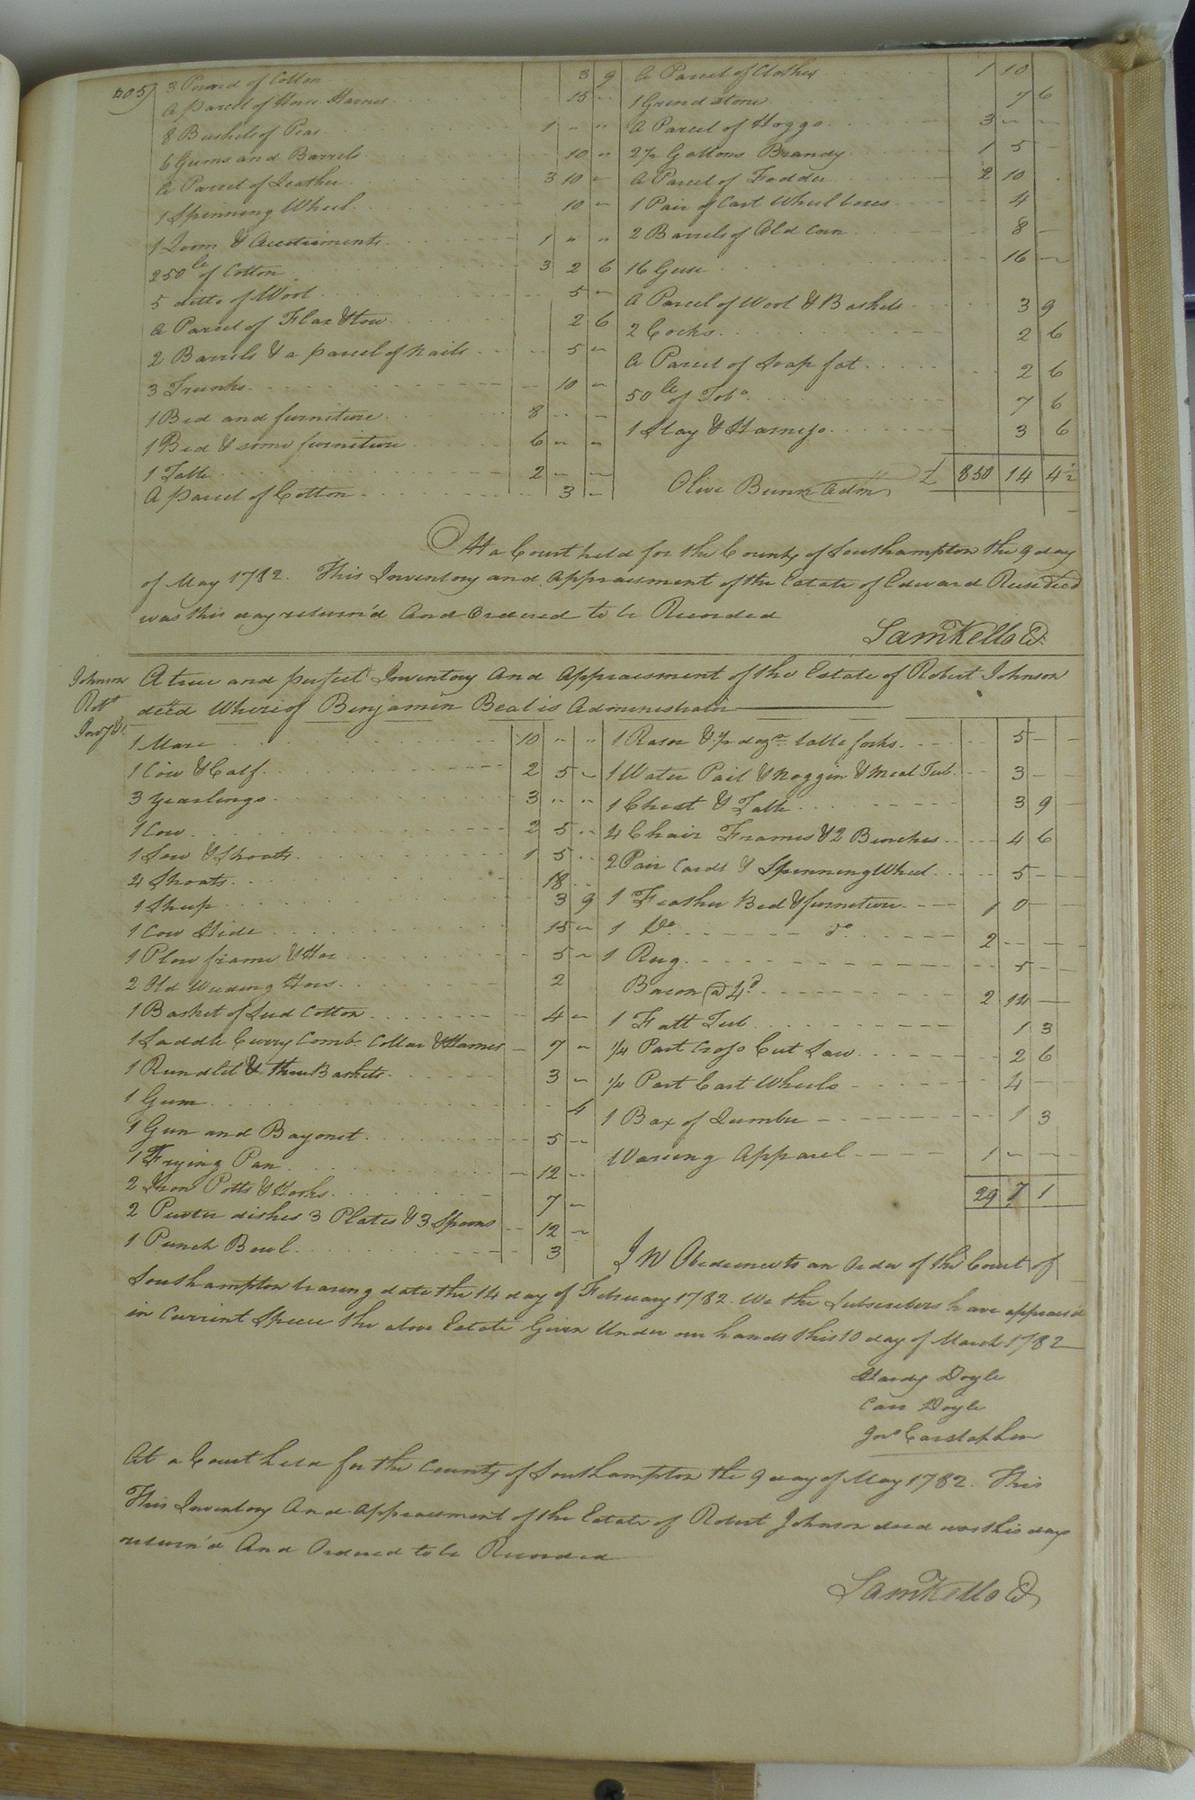 405)
3 Pound of Cotton 3 9
A parcel of Horse Harness 15 -
8 Bushels of Peas 1 - -
6 Gums and Barrels 10 -
A Parcel of Leather 3 10 -
1 Spinning Wheel 10 -
1 Loom & Accutriments 1 - -
250 lb of Cotton 3 2 6
5 ditto of Wool 5 -
A Parcel of Flax & tow 2 6
2 Barrels & a parcel of nails 5 -
3 Trunks 10 -
1 Bed and furniture 8 - -
1 Bed & some furniture 6 - -
1 Table 2 - -
A parcel of Cotton 3 -
A Parcel of Clothes 1 10
1 Grindstone 7 6
A Parcel of Hoggs 3 - -
2½ Gallons Brandy 1 5 -
A Parcel of Fodder 2 10
1 Pair of Cart Wheel boxes 4
2 Barrels of Old Corn 8 -
16 Geese 16 -
A Parcel of Wool & Baskets 3 9
2 Cocks 2 6
A Parcel of Soap fat 2 6
50 lb of Tobo 7 6
1 Slay & Harness 3 6
Olive Bunn Adm £ 850 14 4½
At a Court held for the County of Southampton the 9 day
of May 1782. This Inventory and Appraisment of the Estate of Edward decd
was this day return'd And Ordered to be Recorded
Sam Kello Ct
Johnson
Robt
A true and perfect Inventory And Appraisment of the Estate of Robert Johnson
decd Whereof Benjamin Beal is Administrator
1 Mare 10 - -
1 Cow & Calf 2 5 -
3 Yearlings 3 - -
1 Cow 2 5 -
1 Sow & Shoats 1 5 -
4 Shoats 18 -
1 Sheep 3 9
1 Cow Hide 15 -
1 Plow frame & Hoe 5 -
2 Old Weeding Hoes 2
1 Basket of Seed Cotton 4 -
1 Saddle Curry Comb Collar & Hames 7 -
1 Rundlet & three Baskets 3 -
1 Gum 4
1 Gun and Bayonet 5 -
1 Frying Pan 12 -
2 Iron Potts & Hooks 7 -
2 Pewter dishes 3 Plates & 3 Spoons 12 -
1 Punch Bowl 3
1 Rasor & ½ dozn table forks 5 -
1 Water Pail & noggin & Meal Tub 3 -
1 Chest & Table 3 9
4 Chair Frames & 2 Bunches 4 6
2 Pair Cards & Spinning Wheel 5 -
1 Feather Bed & furniture 1 0 -
1 Do do 2 - -
1 Rug 5 -
Bacon @ 4d 2 12 -
1 Fatt Tub 1 3
¼ Part Cross Cut Saw 2 6
¼ Part Cart Wheels 4 -
1 Box of Lumber 1 3
Waring Apparel 1 - -
29 7 1
In Obedience to an order of the Court of
Southampton bearing date the 14 day of February 1782. We the Subscribers have appraised
in Current Specie the above Estate Given Under our hands this 10 day of March 1782
Hardy Doyle
Carr Doyle
Jno Carstaphen
At a Court held for the County of Southampton the 9 day of May 1782. This
This Inventory And Appraisment of the Estate of Robert Johnson decd was this day
return'd And Ordered to be Recorded
Sam Kello Ct